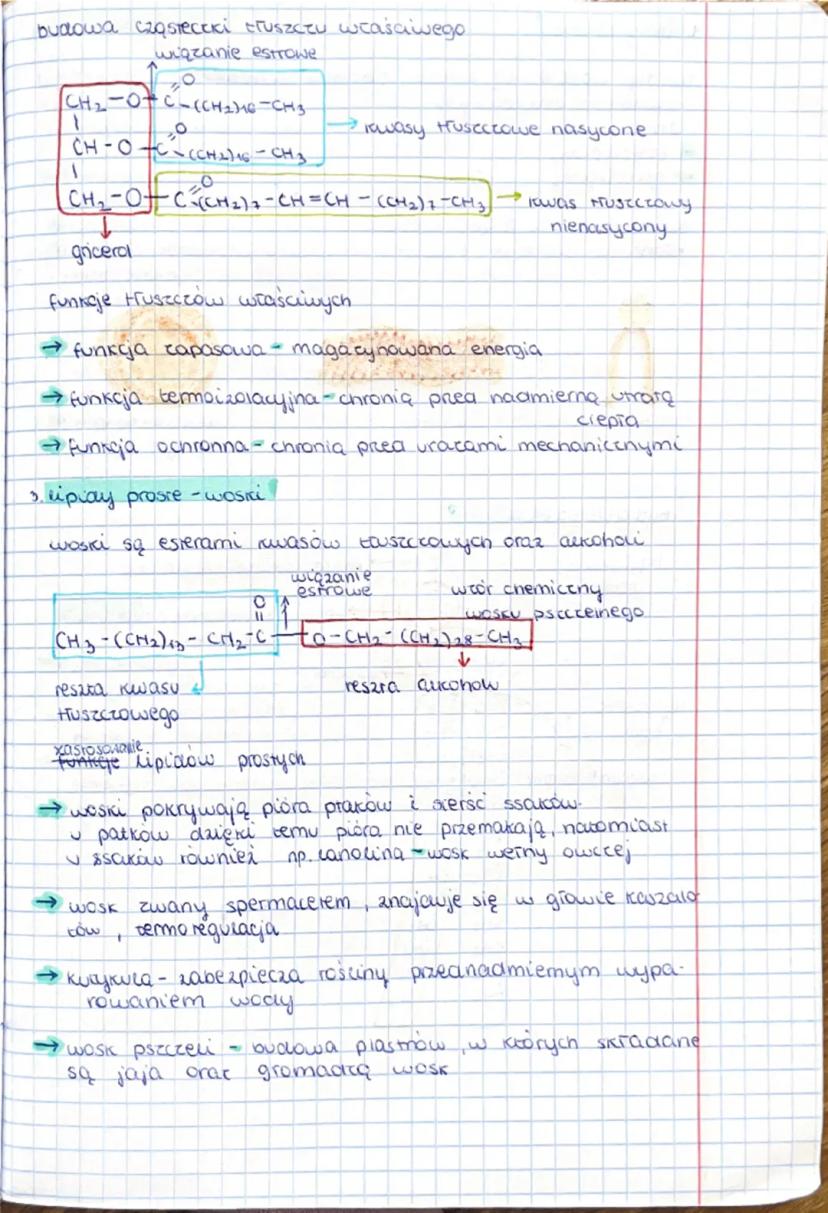 budowa cząsteczki tłuszczu właściwego
wiązanie estrowe
CH2-O-C(=O)-(CH2)16-CH3
CH-O-C(=O)-(CH2)16-CH3
→ kwasy tłuszczowe nasycone
CH2-O-C(=O)-(CH2)7-CH=CH-(CH2)7-CH3 → kwas tłuszczowy
nienasycony
glicerol
funkcje tłuszczów właściwych
→ funkcja zapasowa - magazynowana energia
→ funkcja termoizolacyjna - chronią przed nadmierną utratą
ciepła
→ funkcja ochronna - chronią przed urazami mechanicznymi
3. Lipidy proste - woski
woski są estrami kwasów tłuszczowych oraz alkoholi
wiązanie
estrowe
wzór chemiczny
wosku pszczelnego
CH3-(CH2)13-CH2-C(=O)-O-CH2-(CH2)28-CH3
reszta kwasu
tłuszczowego
reszta alkoholu
zastosowanie
funkcje lipidów prostych
→ woski pokrywają pióra ptaków i sierść ssaków.
u patków dzięki temu pióra nie przemakają, natomiast
u ssaków również np. lanolina - wosk wełny owczej
→ wosk zwany spermacetem, znajduje się w głowie kaszalo
tów, termoregulacja
→ kutykula - zabezpiecza rośliny przednadmiernym wypa-
rowaniem wody
→ wosk pszczeli - budowa plastrów, w których składane
są jaja oraz gromadzą wosk